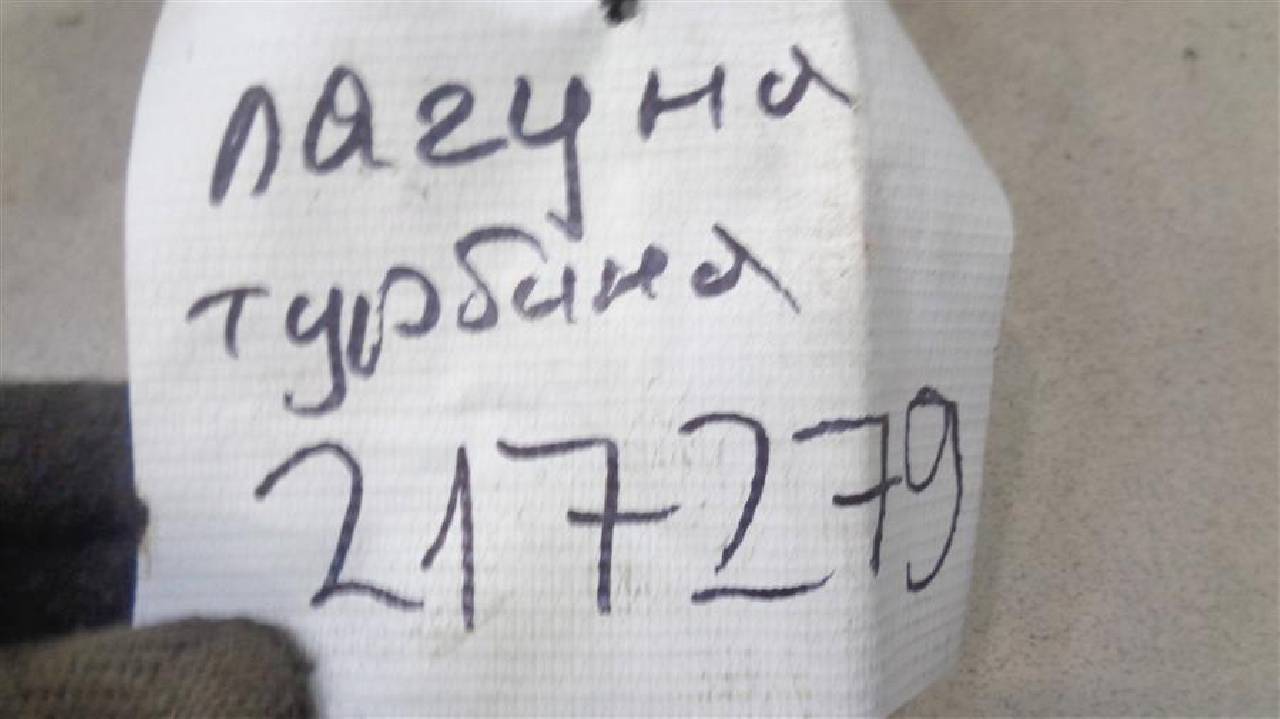 лагуна
турбина
217279